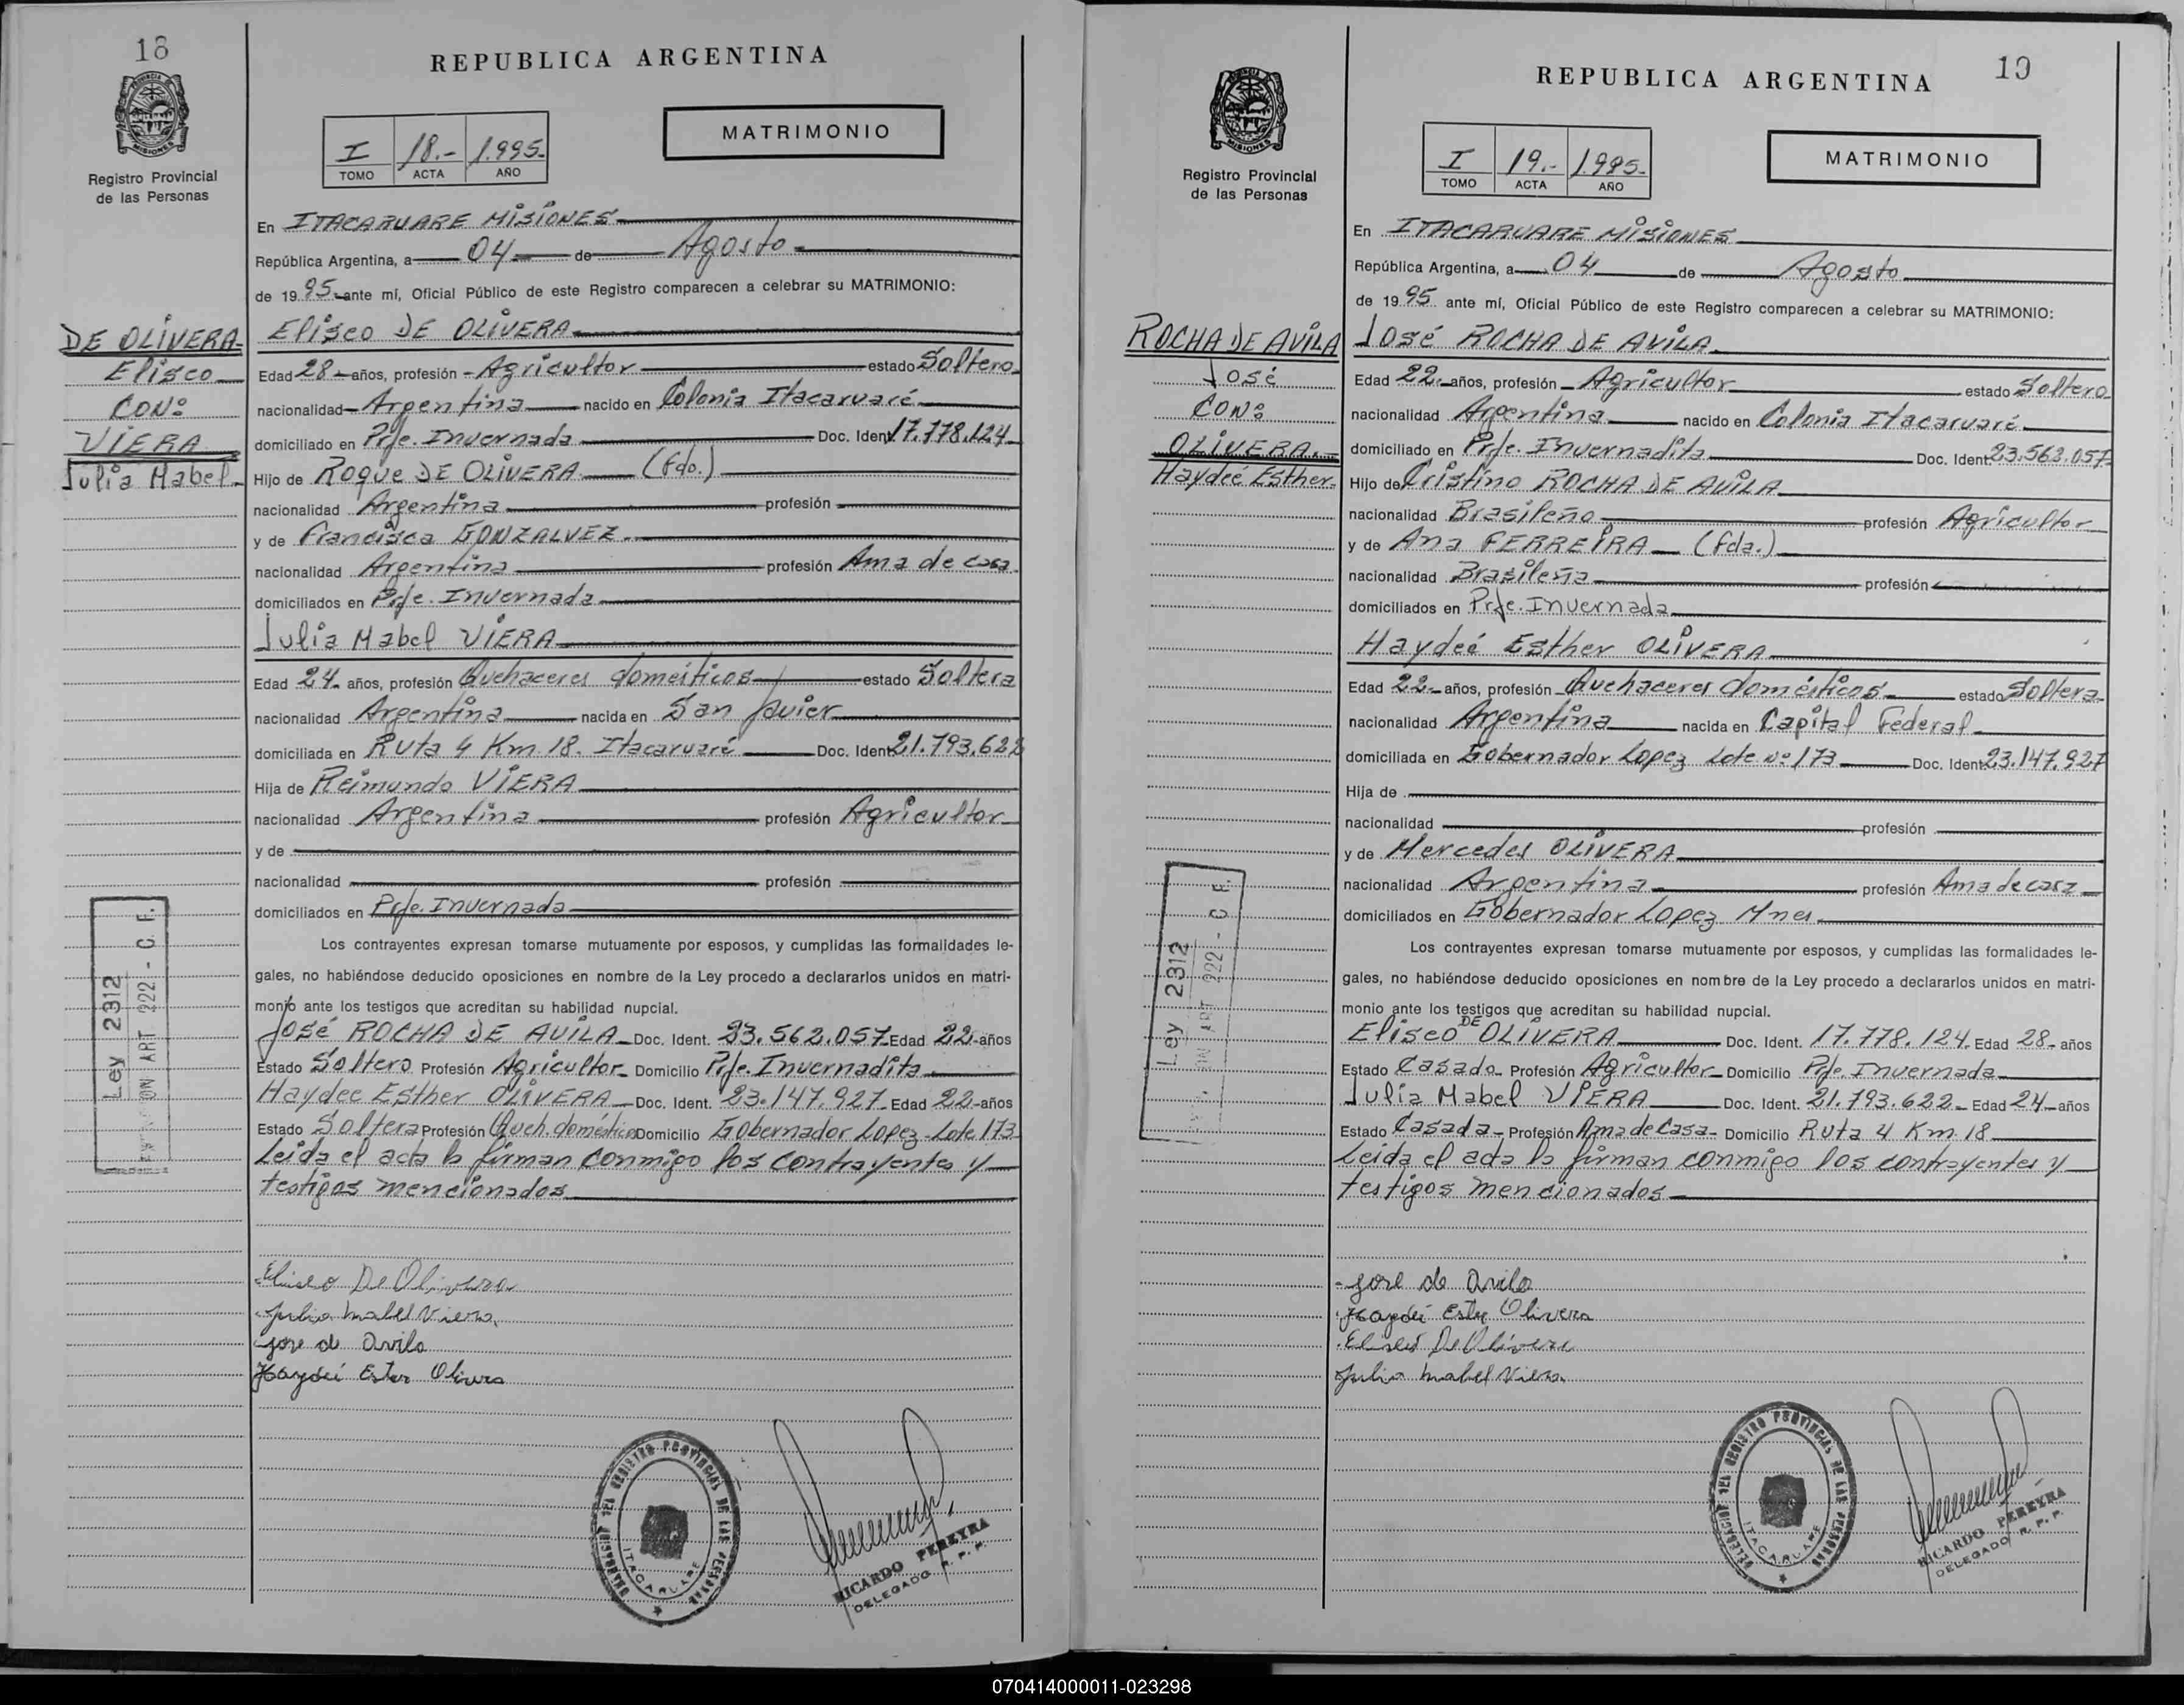 18
PROVINCIA DE
MISIONES
Registro Provincial
de las Personas
REPUBLICA ARGENTINA
I 18.- 1.995.
TOMO ACTA AÑO
MATRIMONIO
En ITACARUARE MISIONES
República Argentina, a 04 de Agosto
de 19 95 ante mí, Oficial Público de este Registro comparecen a celebrar su MATRIMONIO:
DE OLIVERA
Eliseo
CON:
VIERA
Julia Mabel
Eliseo DE OLIVERA
Edad 28 años, profesión Agricultor estado Soltero
nacionalidad Argentina nacido en Colonia Itacaruaré
domiciliado en Prje. Invernada Doc. Ident 17.778.124
Hijo de Roque DE OLIVERA (fdo.)
nacionalidad Argentina profesión
y de Francisca GONZALVEZ
nacionalidad Argentina profesión Ama de casa
domiciliados en Prje. Invernada
Julia Mabel VIERA
Edad 24 años, profesión Quehaceres domésticos estado Soltera
nacionalidad Argentina nacida en San Javier
domiciliada en Ruta 4 Km 18. Itacaruaré Doc. Ident. 21.793.622
Hija de Reimundo VIERA
nacionalidad Argentina profesión Agricultor
y de
nacionalidad profesión
domiciliados en Prje. Invernada
Los contrayentes expresan tomarse mutuamente por esposos, y cumplidas las formalidades le-
gales, no habiéndose deducido oposiciones en nombre de la Ley procedo a declararlos unidos en matri-
monio ante los testigos que acreditan su habilidad nupcial.
José ROCHA DE AVILA Doc. Ident. 23.562.057 Edad 22 años
Estado Soltero Profesión Agricultor Domicilio Prje. Invernadita
Haydee Esther OLIVERA Doc. Ident. 23.147.927 Edad 22 años
Estado Soltera Profesión Queh. domésticos Domicilio Gobernador Lopez-Lote 173
Leida el acta la firman conmigo los contrayentes y
testigos mencionados
Ley 2312
ART 222 - C. F.
Eliseo De Olivera
Julia Mabel Viera
Jose de Avila
Haydeé Ester Olivera
DELEGACION DEL REGISTRO PROVINCIAL DE LAS PERSONAS
ITACARUARE
RICARDO PEREYRA
DELEGADO R. P. P.
19
MISIONES
Registro Provincial
de las Personas
REPUBLICA ARGENTINA
I 19.- 1.995.
TOMO ACTA AÑO
MATRIMONIO
En ITACARUARE MISIONES
República Argentina, a 04 de Agosto
de 19 95 ante mí, Oficial Público de este Registro comparecen a celebrar su MATRIMONIO:
ROCHA DE AVILA
José
CON:
OLIVERA
Haydeé Esther
José ROCHA DE AVILA
Edad 22 años, profesión Agricultor estado Soltero
nacionalidad Argentina nacido en Colonia Itacaruaré
domiciliado en Prje. Invernadita Doc. Ident. 23.563.057
Hijo de Cristino ROCHA DE AVILA
nacionalidad Brasileño profesión Agricultor
y de Ana FERREIRA (fda.)
nacionalidad Brasileña profesión
domiciliados en Prje. Invernada
Haydeé Esther OLIVERA
Edad 22 años, profesión Quehaceres domésticos estado Soltera
nacionalidad Argentina nacida en Capital Federal
domiciliada en Gobernador Lopez Lote Nº 173 Doc. Ident. 23.147.927
Hija de
nacionalidad profesión
y de Mercedes OLIVERA
nacionalidad Argentina profesión Ama de casa
domiciliados en Gobernador Lopez Mnes.
Los contrayentes expresan tomarse mutuamente por esposos, y cumplidas las formalidades le-
gales, no habiéndose deducido oposiciones en nombre de la Ley procedo a declararlos unidos en matri-
monio ante los testigos que acreditan su habilidad nupcial.
Eliseo DE OLIVERA Doc. Ident. 17.778.124 Edad 28 años
Estado Casado Profesión Agricultor Domicilio Prje. Invernada
Julia Mabel VIERA Doc. Ident. 21.793.622 Edad 24 años
Estado Casada Profesión Ama de Casa Domicilio Ruta 4 Km 18
Leida el acta la firman conmigo los contrayentes y
testigos mencionados
Ley 2312
ART 222 - C. F.
Jose de Avila
Haydeé Ester Olivera
Eliseo De Olivera
Julia Mabel Viera
DELEGACION DEL REGISTRO PROVINCIAL DE LAS PERSONAS
ITACARUARE
RICARDO PEREYRA
DELEGADO R. P. P.
070414000011-023298